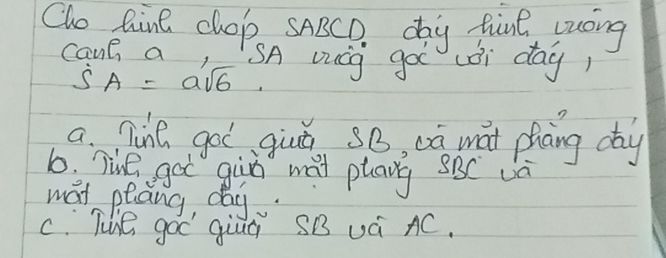 Cho hình chóp SABCD đáy hình vuông
cạnh a, SA vuông góc với đáy,
SA = a√6.
a. Tính góc giữa SB và mặt phẳng đáy
b. Tính góc giữa mặt phẳng SBC và
mặt phẳng đáy.
c. Tính góc giữa SB và AC.